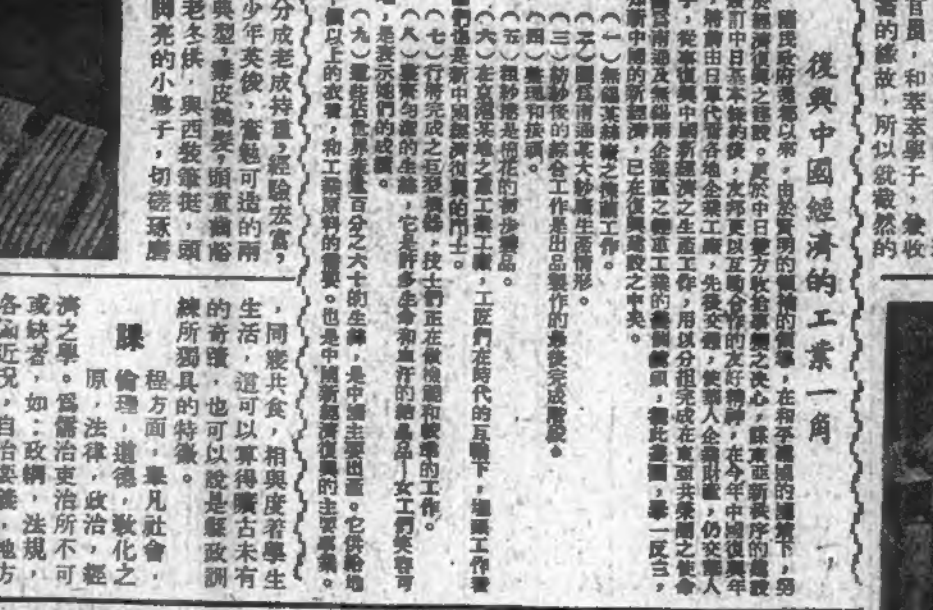 官員，和莘莘學子，兼收
的緣故，所以說截然的
復興中國經濟的工業一角
國民政府還都以來，由於賢明的領袖的領導，在和平建國的國策下，努
於經濟復興之建設。更於中日雙方收拾事變之決心，謀東亞新秩序的建設
簽訂中日基本條約後，友邦更以互助合作的友好精神，在今年中國復興年
將前由日軍代管各地企業工廠，先後交還，使華人企業財產，仍交華人
，從事復興中國新經濟之生產工作，用以分担完成在東亞共榮圈之使命
南通及無錫兩企業區之輕重工業的 ，舉一反三，
新中國的新經濟，已在復興建設之中矣。
（一）無錫某絲廠之繅絲工作。
（二）圖爲南通某大紗廠生產情形。
（三）紡紗後的綜合工作是出品製作的最後完成階段。
（四）整理和接頭。
（五）粗紗捲是棉花的初步產品。
（六）在京滬某地之重工業工廠，工匠們在時代的巨輪下，埋頭工作着
們也是新中國經濟復興的鬥士。
（七）行將完成之巨型機器，技士們正在做檢驗和較準的工作。
（八）整齊勻潔的生絲，它是許多生命和血汗的結晶品—女工們笑容可
，是表示她們的成績。
（九）還裝佔世界產量百分之六十的生絲，是中國主要出產。它供給地
以上的衣着，和工業原料的需要。也是中國新經濟復興的主要事業。
分成老成持重，經驗宏富，
少年英俊，奮勉可造的兩
典型，雞皮鶴髮，頭童齒豁
老冬烘，與西裝筆挺，頭
脚亮的小夥子，切磋琢磨
，同寢共食，相與度着學生
生活，這可以算得曠古未有
的奇蹟，也可以說是縣政訓
練所獨具的特徵。
課
程方面，舉凡社會，
倫理，道德，敎化之
原，法律，政治，經
濟之學。爲儒治吏治所不可
或缺者，如：政綱，法規，
各國近況，自治要義，地方